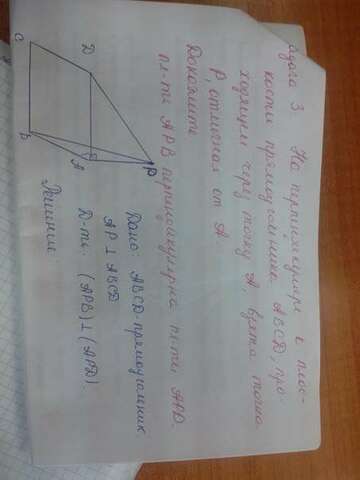 Задача 3 На перпендикуляре к плос-
кости прямоугольника ABCD, про-
ходящем через точку A, взята точка
P, отличная от A.
Докажите
пл-ть APB перпендикулярна пл-ти APD.
Дано: ABCD-прямоугольник
AP ⊥ ABCD
D-ть: (APB) ⊥ (APD).
Решение
C
D
B
A
P